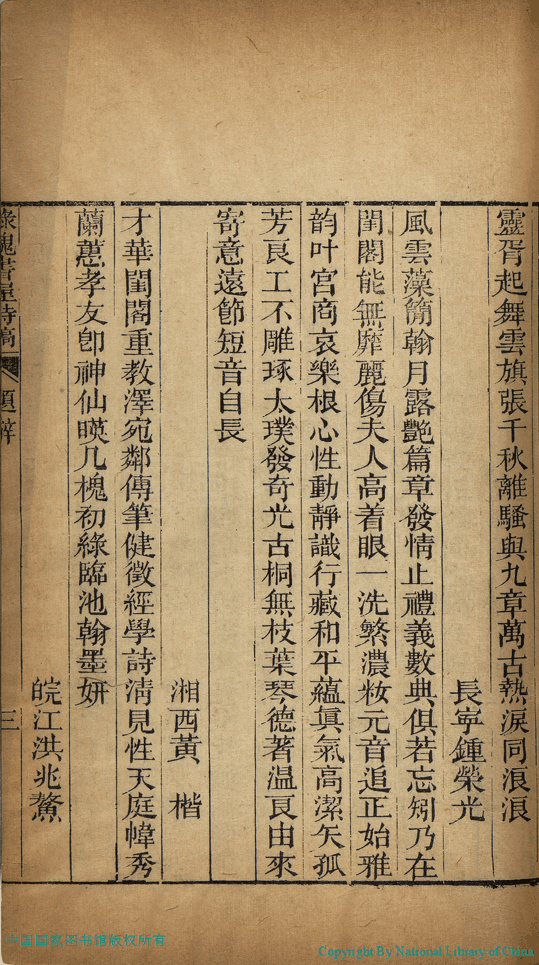 靈胥起舞雲旗張千秋離騷與九章萬古熱淚同浪浪
長寧鍾榮光
風雲藻簡翰月露艷篇章發情止禮義數典俱若忘矧乃在
閨閣能無靡麗傷夫人高着眼一洗繁濃妝元音追正始雅
韵叶宮商哀樂根心性動靜識行藏和平蘊眞氣高潔矢孤
芳良工不雕琢太璞發奇光古桐無枝葉琴德著溫良由來
寄意遠節短音自長
湘西黃楷
才華閨閣重教澤宛鄰傳筆健徵經學詩清見性天庭幃秀
蘭蕙孝友卽神仙暎几槐初綠臨池翰墨妍
皖江洪兆鰲
綠槐書屋詩稿
題辭
三
中国国家图书馆版权所有
Copyright By National Library of China